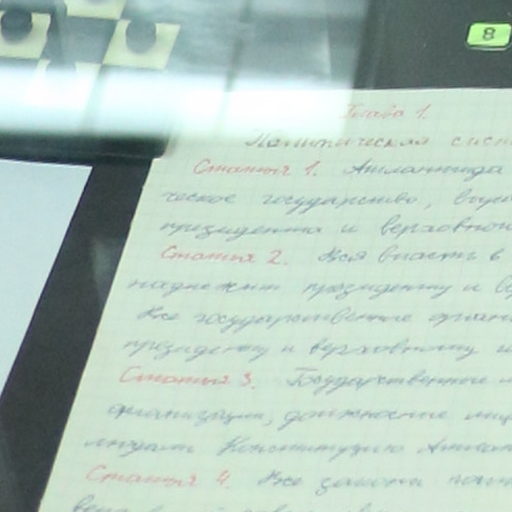 8
Глава 1.
Политическая сист
Статья 1. Атлантида
ческое государство,
президента и верховно
Статья 2. Вся власть в
надлежит президенту и ве
Все государственные орган
президенту и верховному
Статья 3. Государственные и
организации, должностные лиц
людать Конституцию Атлан
Статья 4. Все законы